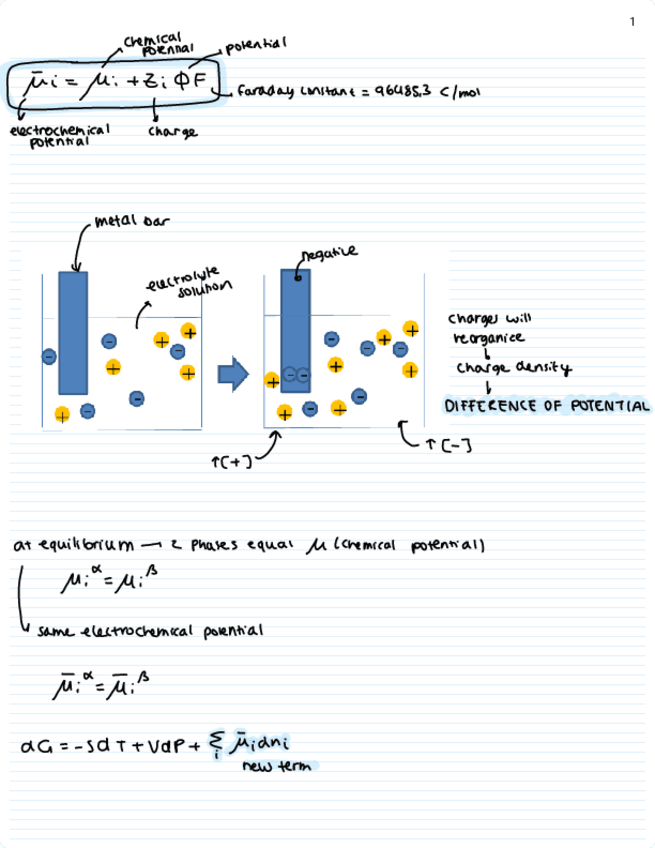 1
chemical
potential
potential
μ̄i = μi + zi ΦF
Faraday constant = 96485,3 C/mol
electrochemical
potential
charge
metal bar
negative
electrolyte
solution
charges will
reorganice
charge density
DIFFERENCE OF POTENTIAL
↑[+]
↑[-]
at equilibrium — 2 phases equal μ (chemical potential)
μi^α = μi^β
same electrochemical potential
μ̄i^α = μ̄i^β
dG = -SdT + VdP + Σi μ̄idni
new term